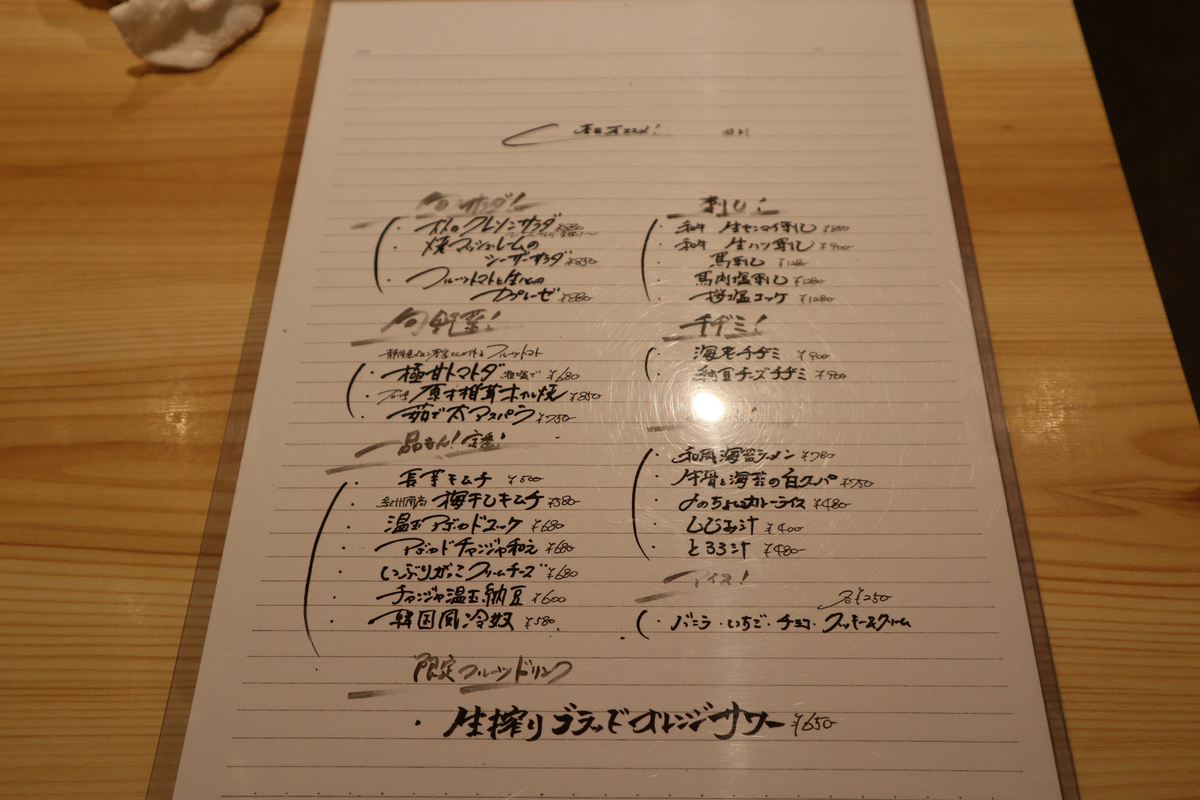 本日オススメ! 税別
旬サラダ!
・秋のクレソンサラダ ¥880
・焼マッシュルームの
シーザーサラダ ¥850
・フルーツトマトと生ハムの
カプレーゼ ¥880
旬野菜!
フルーツトマト
・極甘トマトダ 粗塩で ¥680
・原木椎茸ホイル焼 ¥850
・茹で太アスパラ ¥750
一品もん!定番!
・長芋キムチ ¥500
・紀州南高 梅干しキムチ ¥580
・温玉アボカドユッケ ¥680
・アボカドチャンジャ和え ¥680
・いぶりがっこクリームチーズ ¥680
・チャンジャ温玉納豆 ¥600
・韓国風冷奴 ¥580
限定フルーツドリンク
・生搾りブラッドオレンジサワー ¥650
刺し!
・和牛 生センマイ刺し ¥850
・和牛 生ハツ刺し ¥900
・馬刺し
・馬肉塩刺し ¥1280
・桜塩ユッケ ¥1280
チヂミ!
・海老チヂミ ¥900
・納豆チーズチヂミ ¥900
・和風海苔ラーメン ¥780
・牛骨と海苔の白クッパ ¥750
・〆のちょいカレーライス ¥480
・しじみ汁 ¥400
・とろろ汁 ¥480
アイス!
各¥250
・バニラ・いちご・チョコ・クッキー&クリーム